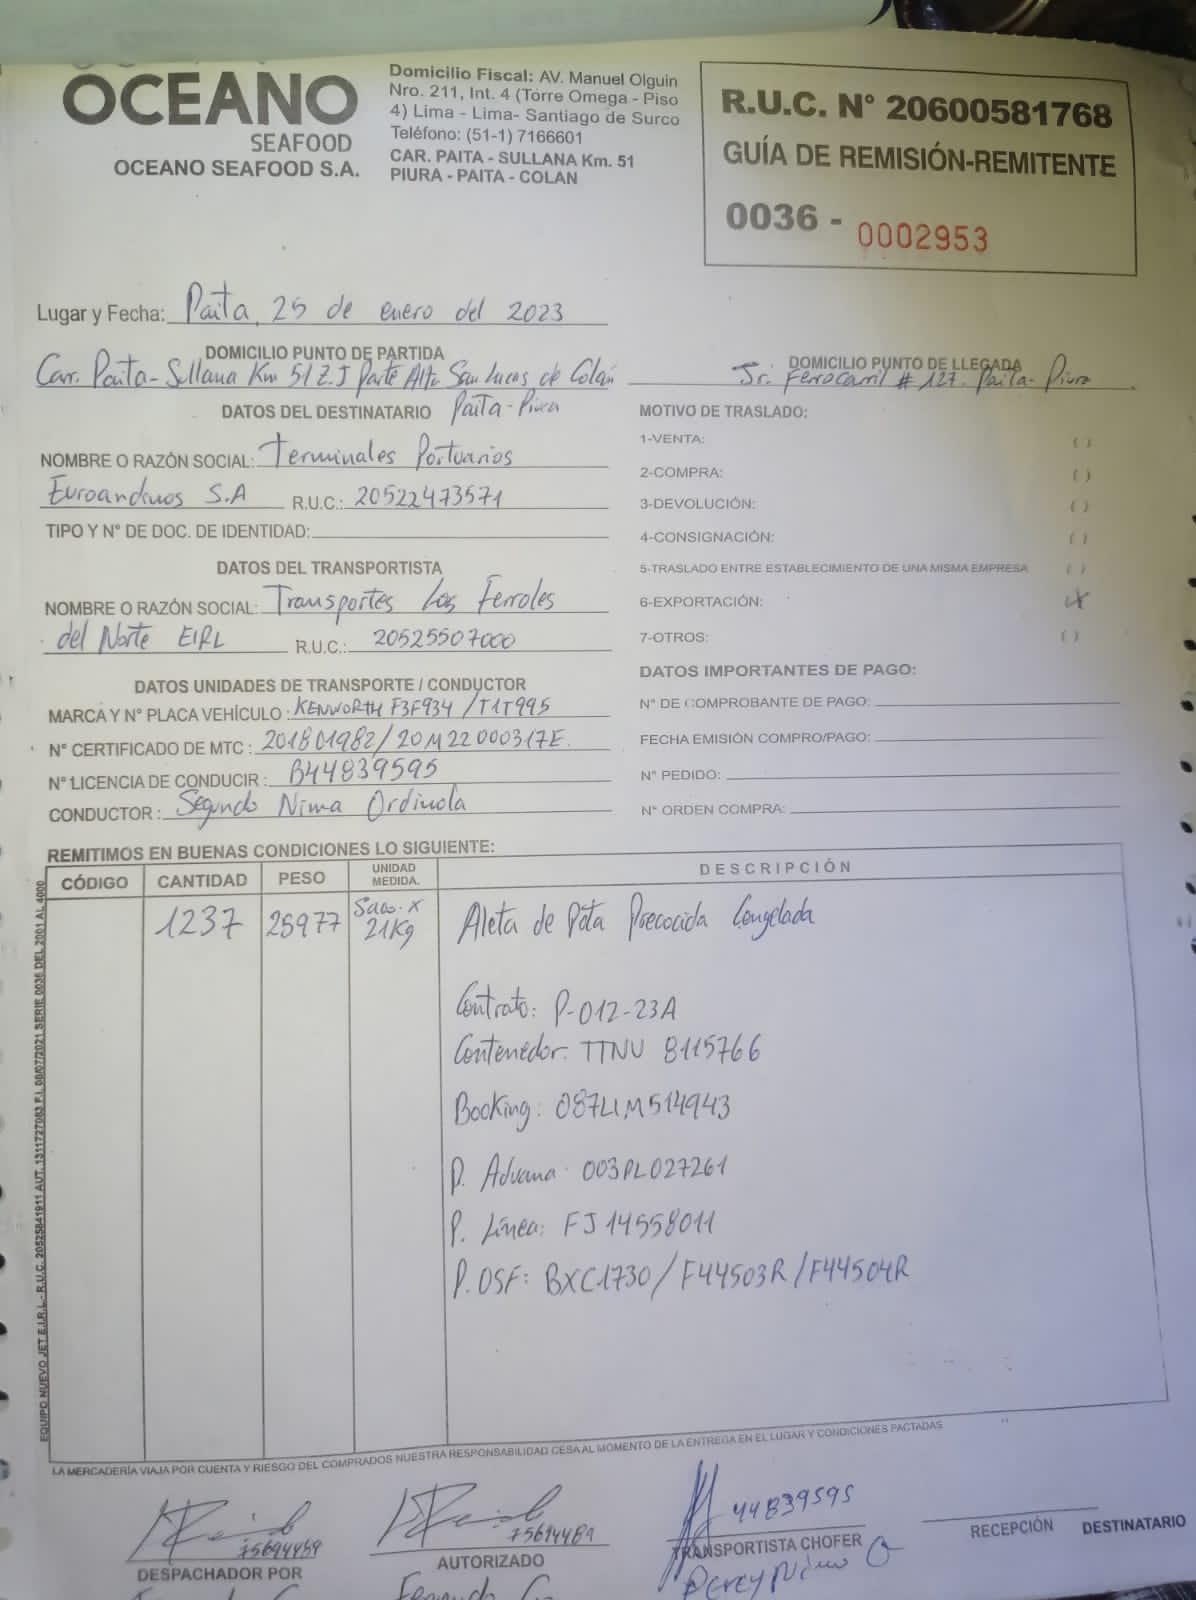 OCEANO
SEAFOOD
OCEANO SEAFOOD S.A.
Domicilio Fiscal: AV. Manuel Olguin
Nro. 211, Int. 4 (Torre Omega - Piso
4) Lima - Lima- Santiago de Surco
Teléfono: (51-1) 7166601
CAR. PAITA - SULLANA Km. 51
PIURA - PAITA - COLAN
R.U.C. N° 20600581768
GUÍA DE REMISIÓN-REMITENTE
0036 - 0002953
Lugar y Fecha: Paita, 25 de enero del 2023
DOMICILIO PUNTO DE PARTIDA
Carr. Paita-Sullana Km 51 Z.I Parte Alta San Lucas de Colán
Paita-Piura
DOMICILIO PUNTO DE LLEGADA
Jr. Ferrocarril # 127. Paita-Piura
DATOS DEL DESTINATARIO
NOMBRE O RAZÓN SOCIAL: Terminales Portuarios
Euroandinos S.A R.U.C.: 20522473571
TIPO Y N° DE DOC. DE IDENTIDAD:
DATOS DEL TRANSPORTISTA
NOMBRE O RAZÓN SOCIAL: Transportes Los Ferroles
del Norte EIRL R.U.C.: 20525507000
DATOS UNIDADES DE TRANSPORTE / CONDUCTOR
MARCA Y N° PLACA VEHÍCULO: KENWORTH F3F934 /T1T995
N° CERTIFICADO DE MTC: 201801982/20M22000317E.
N° LICENCIA DE CONDUCIR: B44839595
CONDUCTOR: Segundo Nima Ordinola
MOTIVO DE TRASLADO:
1-VENTA: ( )
2-COMPRA: ( )
3-DEVOLUCIÓN: ( )
4-CONSIGNACIÓN: ( )
5-TRASLADO ENTRE ESTABLECIMIENTO DE UNA MISMA EMPRESA ( )
6-EXPORTACIÓN: (X)
7-OTROS: ( )
DATOS IMPORTANTES DE PAGO:
N° DE COMPROBANTE DE PAGO:
FECHA EMISIÓN COMPRO/PAGO:
N° PEDIDO:
N° ORDEN COMPRA:
REMITIMOS EN BUENAS CONDICIONES LO SIGUIENTE:
CÓDIGO CANTIDAD PESO UNIDAD MEDIDA. DESCRIPCIÓN
1237 25977 Saco x 21Kg Aleta de Pota Precocida Congelada
Contrato: P-012-23A
Contenedor: TTNU 8115766
Booking: 087LIM514943
P. Aduana: 003PL027261
P. Línea: FJ14558011
P. OSF: BXC1730/F44503R/F44504R
EQUIPO NUEVO JET E.I.R.L - R.U.C. 20525841911 AUT. 1311727083 F.I. 08/07/2021 SERIE 0036 DEL 2001 AL 4000
LA MERCADERÍA VIAJA POR CUENTA Y RIESGO DEL COMPRADOS NUESTRA RESPONSABILIDAD CESA AL MOMENTO DE LA ENTREGA EN EL LUGAR Y CONDICIONES PACTADAS
75694489
DESPACHADOR POR
75694489
AUTORIZADO
44839595
TRANSPORTISTA CHOFER
RECEPCIÓN DESTINATARIO